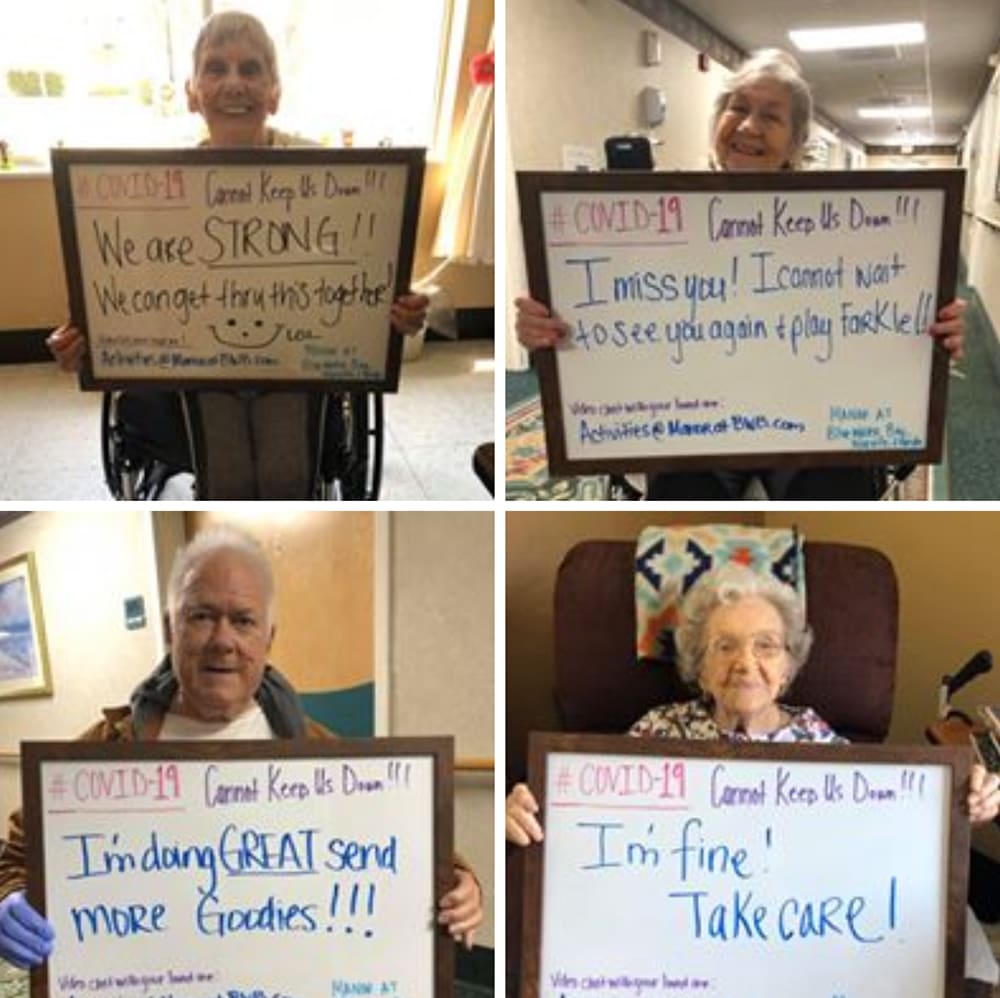 #COVID-19 Cannot Keep Us Down!!!
We are STRONG!!
We can get thru this together!
Activities@ManoratBWB.com
MANOR AT
Blue Water Bay
#COVID-19 Cannot Keep Us Down!!!
I miss you! I cannot wait
to see you again & play FarKle!!
Video chat with your loved one:
Activities@ManoratBWB.com
MANOR AT
Blue Water Bay
#COVID-19 Cannot Keep Us Down!!!
I'm doing GREAT send
more Goodies!!!
Video chat with your loved one:
MANOR AT
#COVID-19 Cannot Keep Us Down!!!
I'm fine!
Take care!
Video chat with your loved one: